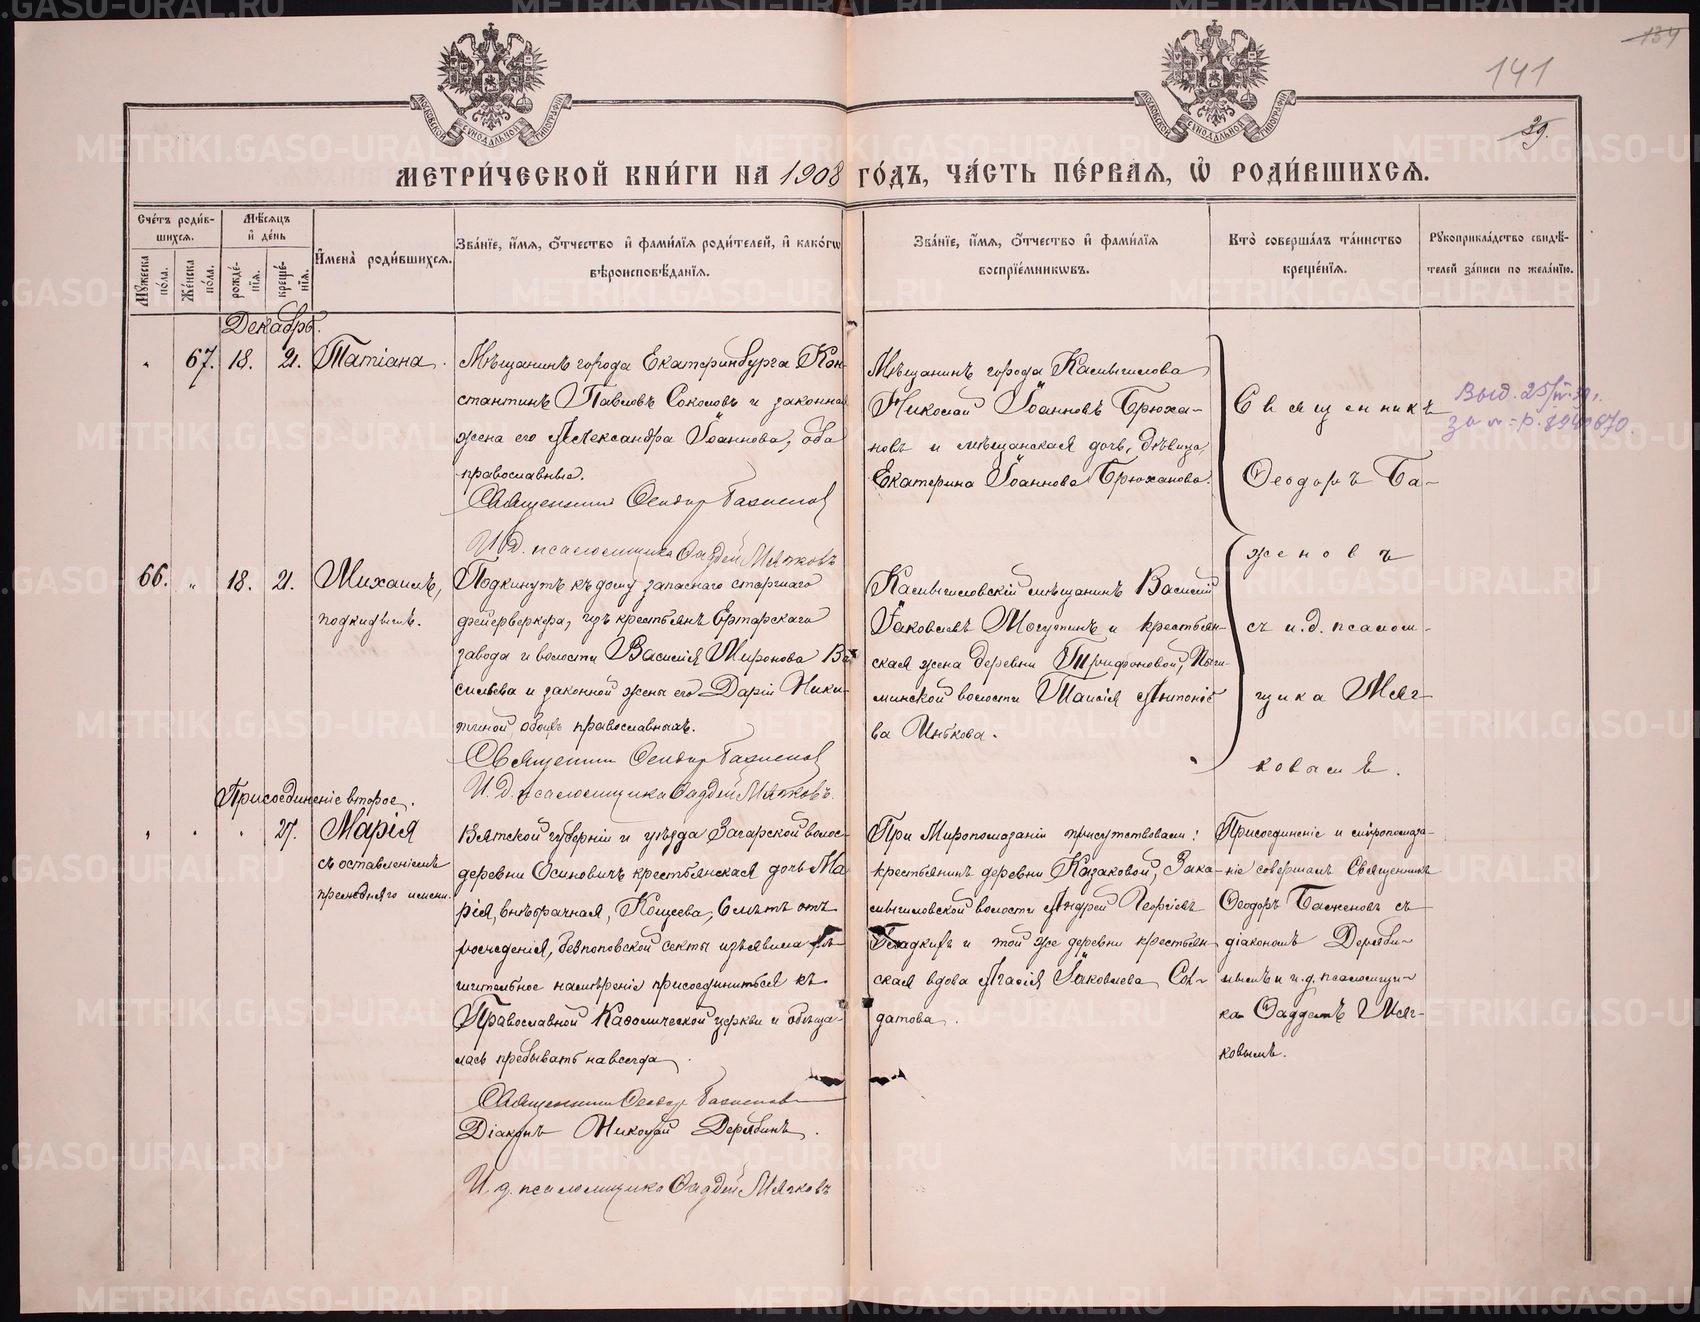 134
141
39.
МОСКОВСКОЙ СУНОДАЛЬНОЙ ТИПОГРАФІИ
МОСКОВСКОЙ СУНОДАЛЬНОЙ ТИПОГРАФІИ
МЕТРИ́ЧЕСКОЙ КНИ́ГИ НА 1908 ГО́ДЪ, ЧА́СТЬ ПЕ́РВАѦ, Ѡ҆ РОДИ́ВШИХСѦ.
Сче́тъ роди́в-
шихсѧ.
Мꙋ́жеска по́ла.
Же́нска по́ла.
Мѣ́сѧцъ
и҆ де́нь
рожде́-
нїѧ.
креще́-
нїѧ.
И҆мена̀ роди́вшихсѧ.
Зва́нїе, и҆́мѧ, ѻ҆́тчество и҆ фами́лїѧ роди́телей, и҆ како́гѡ
вѣроисповѣ́данїѧ.
Зва́нїе, и҆́мѧ, ѻ҆́тчество и҆ фами́лїѧ
воспрїе́мникѡвъ.
Кто̀ соверша́лъ та́инство
креще́нїѧ.
Рꙋкоприкла́дство свидѣ́-
телей за́писи по жела́нїю.
Декабрь.
" 67. 18. 21. Татіана.
Мѣщанинъ города Екатеринбурга Кон-
стантинъ Павловъ Соколовъ и законная
жена его Александра Іоаннова, оба
православные.
Священникъ Ѳеодоръ Баженовъ
И.д. псаломщика Ѳаддей Мягковъ
Мѣщанинъ города Камышлова
Николай Іоанновъ Брюха-
новъ и мѣщанская дочь, дѣвица
Екатерина Іоаннова Брюханова.
Священникъ
Ѳеодоръ Ба-
женовъ
съ и.д. псалом-
щика Мяг-
ковымъ.
Выд. 25/IV
66. " 18. 21. Михаилъ,
подкидышъ.
Подкинутъ къ дому запаснаго старшаго
фейерверкера, изъ крестьянъ Ертарскаго
завода и волости Василія Миронова Ва-
сильева и законной жены его Даріи Ники-
тиной, обоихъ православныхъ.
Священникъ Ѳеодоръ Баженовъ
И.д. псаломщика Ѳаддей Мягковъ.
Камышловскій мѣщанинъ Василій
Іаковлевъ Могутинъ и крестьян-
ская жена деревни Трифоновой, Пыш-
минской волости Таисія Антоніе-
ва
Присоединеніе второе.
" " " 27. Марія
съ оставленіемъ
прежняго имени.
Вятской губерніи и уѣзда Загарской волос.
деревни Осиновичъ крестьянская дочь Ма-
рія, внѣбрачная, Кощеева, лѣтъ отъ
рожденія, безпоповской секты изъявила рѣ-
шительное намѣреніе присоединиться къ
Православной Каѳолической церкви и обѣща-
лась пребывать навсегда.
Священникъ Ѳеодоръ Баженовъ
Діаконъ Николай Дерябинъ.
И.д. псаломщика Ѳаддей Мягковъ
При Миропомазаніи присутствовали:
крестьянинъ деревни Казаковой, Зака-
мышловской волости Андрей Георгіевъ
Гладкихъ и той же деревни крестьян-
ская вдова Агафія Іаковлева Сол-
датова.
Присоединеніе и миропомаза-
ніе совершалъ Священникъ
Ѳеодоръ Баженовъ съ
діакономъ Деряби-
нымъ и и.д. псаломщи-
ка Ѳаддемъ Мяг-
ковымъ.
METRIKI.GASO-URAL.RU